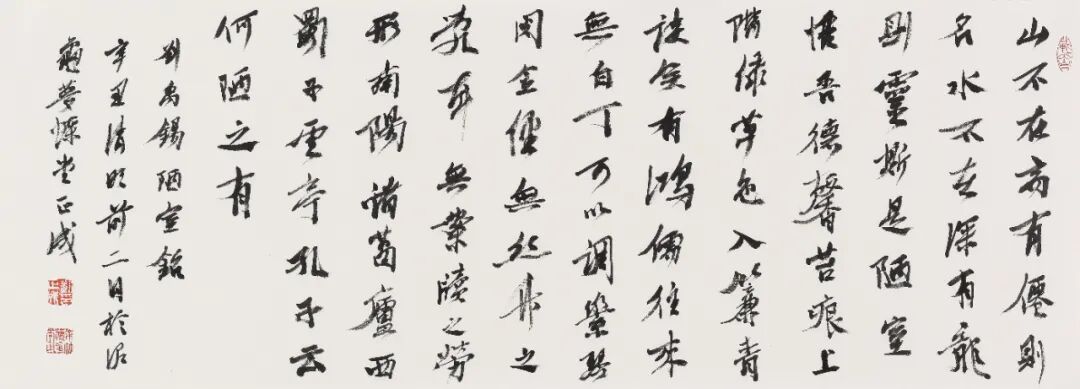 山不在高有僊則
名水不在深有龍
則靈斯是陋室
惟吾德馨苔痕上
階綠草色入簾青
談笑有鴻儒往來
無白丁可以調素琴
閱金經無絲竹之
亂耳無案牘之勞
形南陽諸葛廬西
蜀子雲亭孔子云
何陋之有
劉禹錫陋室銘
辛丑清明前二日於
夢堂正成